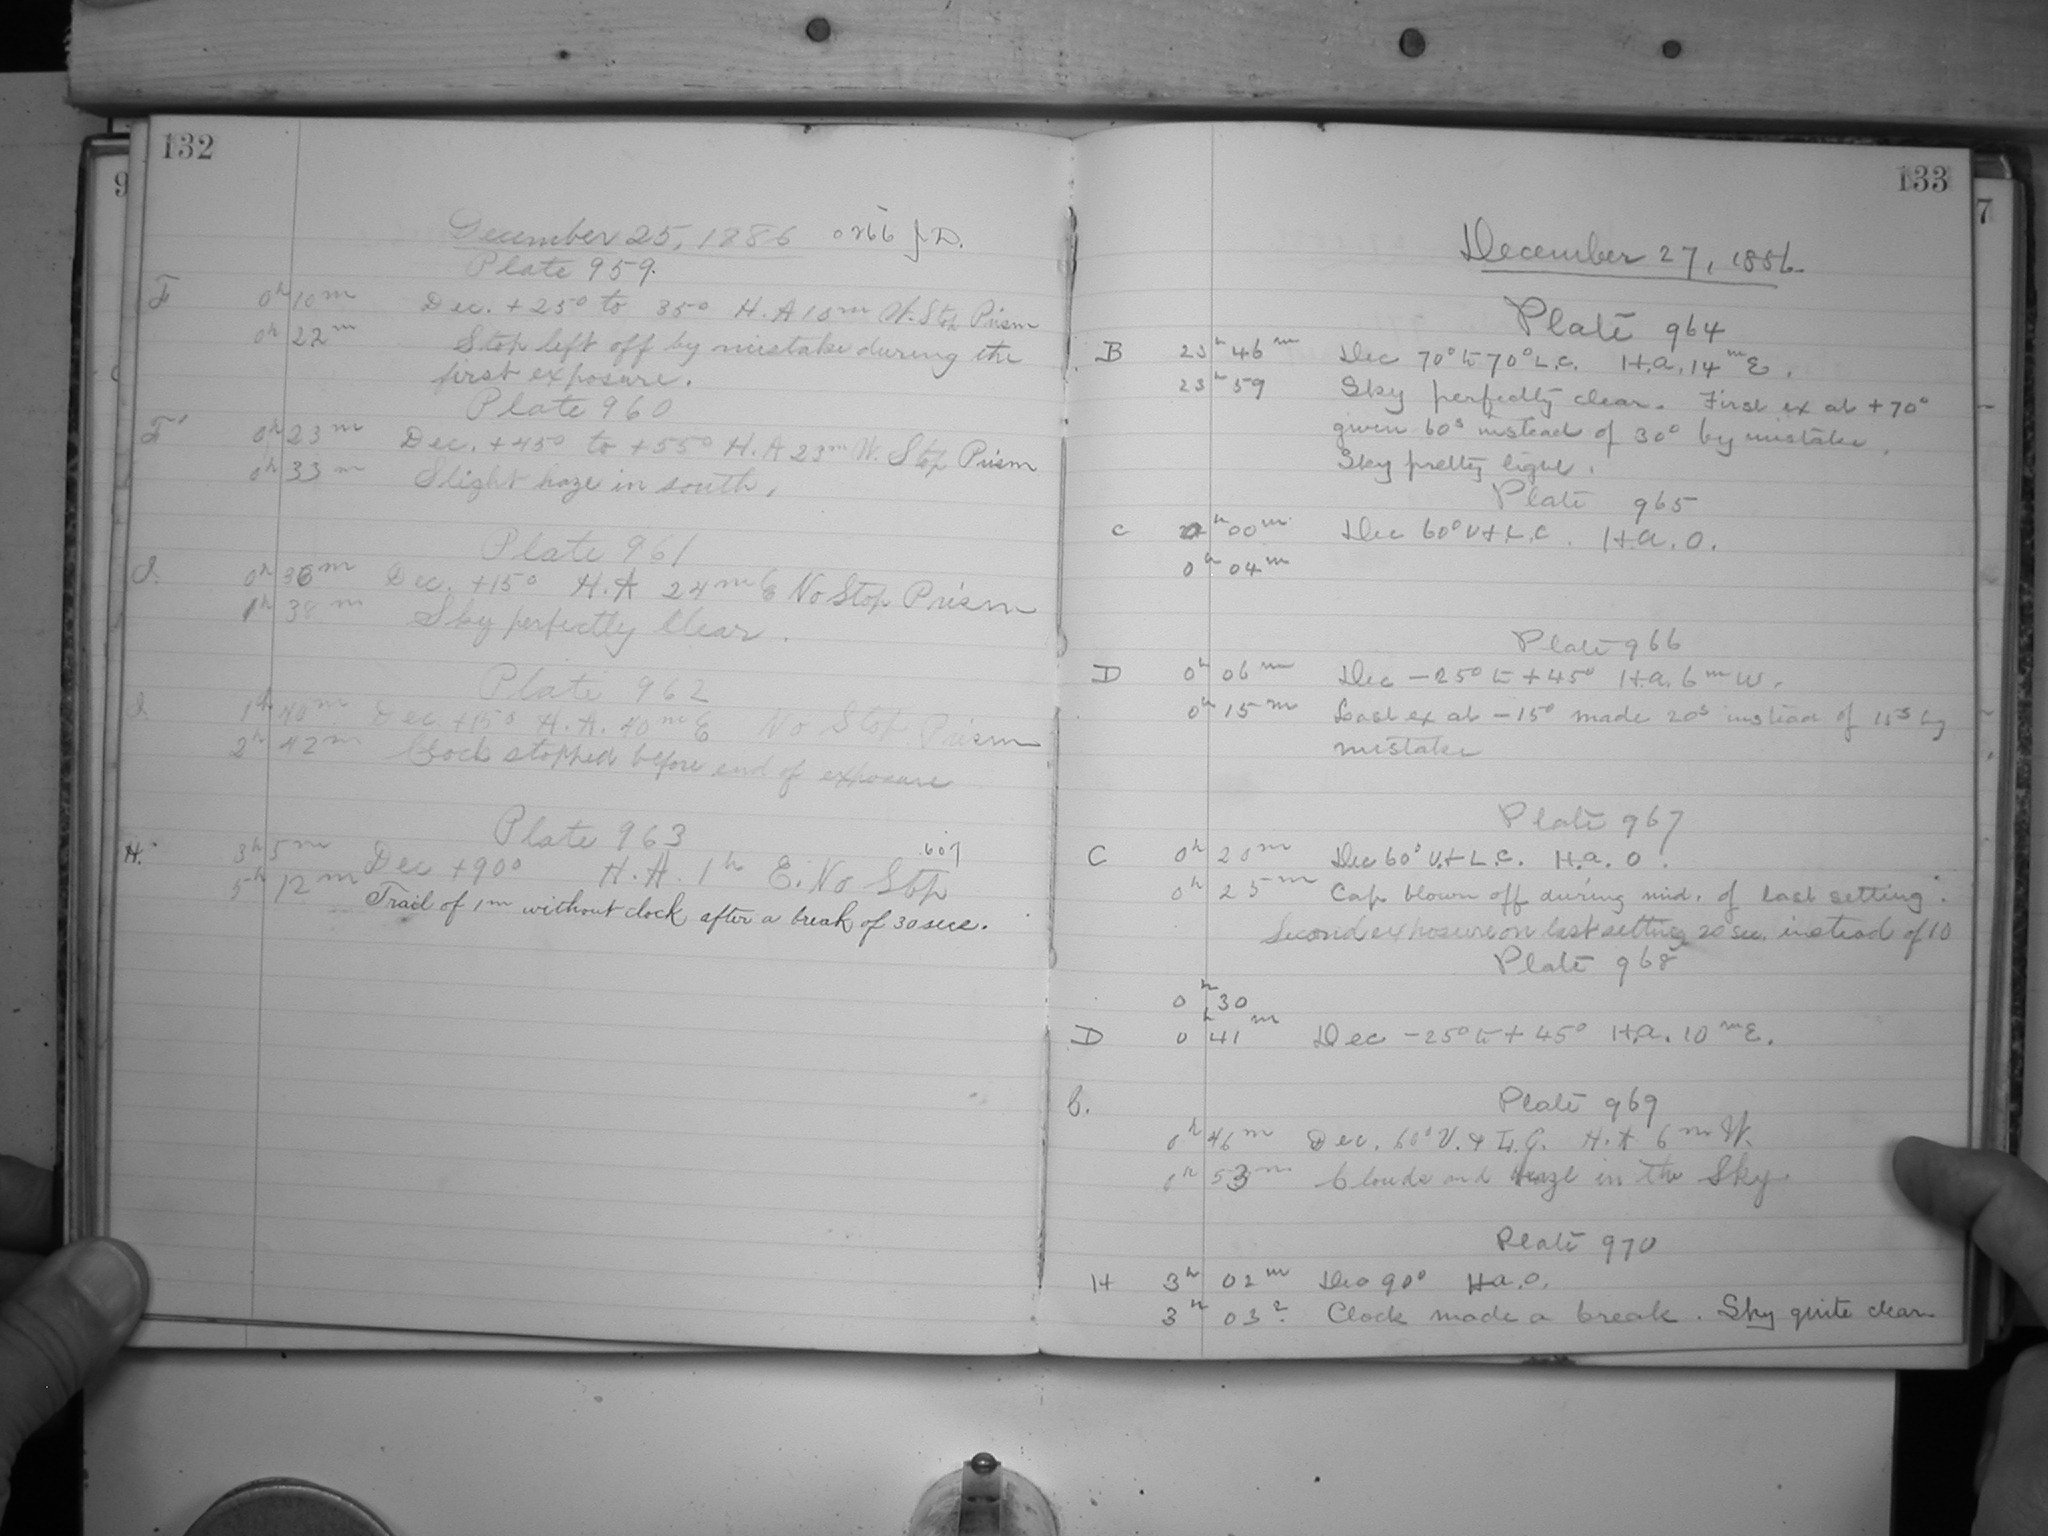 132
December 25, 1886 0266 J.D.
Plate 959.
F 0h 10m Dec. +25° to 35° H.A 10m W. Stop Prism
0h 22m Stop left off by mistake during the
first exposure.
Plate 960
F' 0h 23m Dec. +45° to +55° H.A 23m W. Stop Prism
0h 33m Slight haze in south.
Plate 961
I. 0h 36m Dec. +15° H.A 24m E No Stop Prism
1h 38m Sky perfectly Clear.
Plate 962
I. 1h 40m Dec +15° H.A. 40m E No Stop Prism
2h 42m Clock stopped before end of exposure
Plate 963
H. 3h 5m Dec +90° H.A. 1h E. No Stop
5h 12m
Trail of 1m without clock after a break of 30 secs.
133
December 27, 1886.
Plate 964
B 23h 46m Dec 70° to 70° L.C. H.A. 14m E.
23h 59 Sky perfectly clear. First ex at +70°
given 60s instead of 30s by mistake.
Sky pretty light.
Plate 965
C 0h 00m Dec 60° U + L.C. H.A. 0.
0h 04m
Plate 966
D 0h 06m Dec -25° to +45° H.A. 6m W.
0h 15m Last ex at -15° made 20s instead of 15s by
mistake
Plate 967
C 0h 20m Dec 60° U. + L.C. H.A. 0.
0h 25m Cap blown off during mid. of last setting.
Second exposure on last setting 20 sec. instead of 10
Plate 968
0h 30
D 0h 41m Dec -25° to +45° H.A. 10m E.
C. Plate 969
0h 46m Dec. 60° U. & L.C. H.A 6m W.
0h 53m Clouds and haze in the Sky.
Plate 970
H 3h 02m Dec 90° H.A. 0.
3h 03? Clock made a break. Sky quite clear.